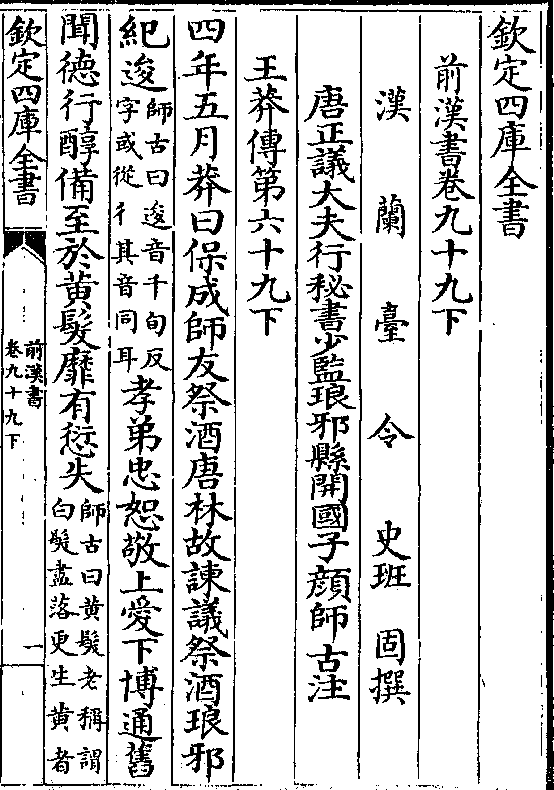 欽定四庫全書
前漢書卷九十九下
漢蘭臺令史班固撰
唐正議大夫行秘書少監琅邪縣開國子顔師古注
王莽傳第六十九下
四年五月莽曰保成師友祭酒唐林故諫議祭酒琅邪
紀逡師古曰逡音千旬反字或從彳其音同耳孝弟忠恕敬上愛下博通舊
聞德行醇備至於黄髮靡有愆失師古曰黄髮老稱謂白髮盡落更生黄者
欽定四庫全書
前漢書
卷九十九下
一